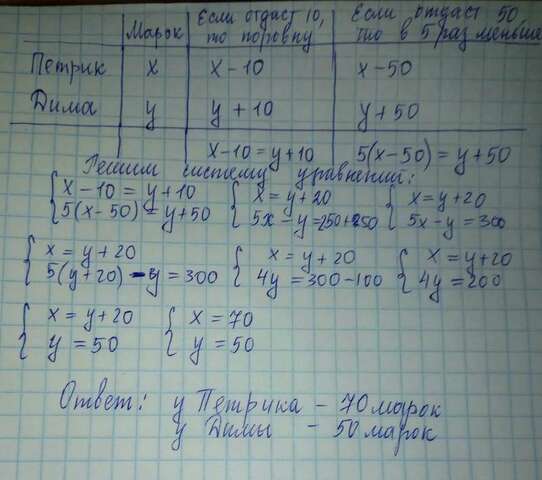 Марок Если отдаст 10, то поровну Если отдаст 50 то в 5 раз меньше
Петрик x x-10 x-50
Дима y y+10 y+50
x-10=y+10 5(x-50)=y+50
Решим систему уравнений:
{x-10=y+10 {x=y+20 {x=y+20
5(x-50)=y+50 5x-y=250+50 5x-y=300
{x=y+20 {x=y+20 {x=y+20
5(y+20)-y=300 4y=300-100 4y=200
{x=y+20 {x=70
y=50 y=50
Ответ: у Петрика - 70 марок
у Димы - 50 марок